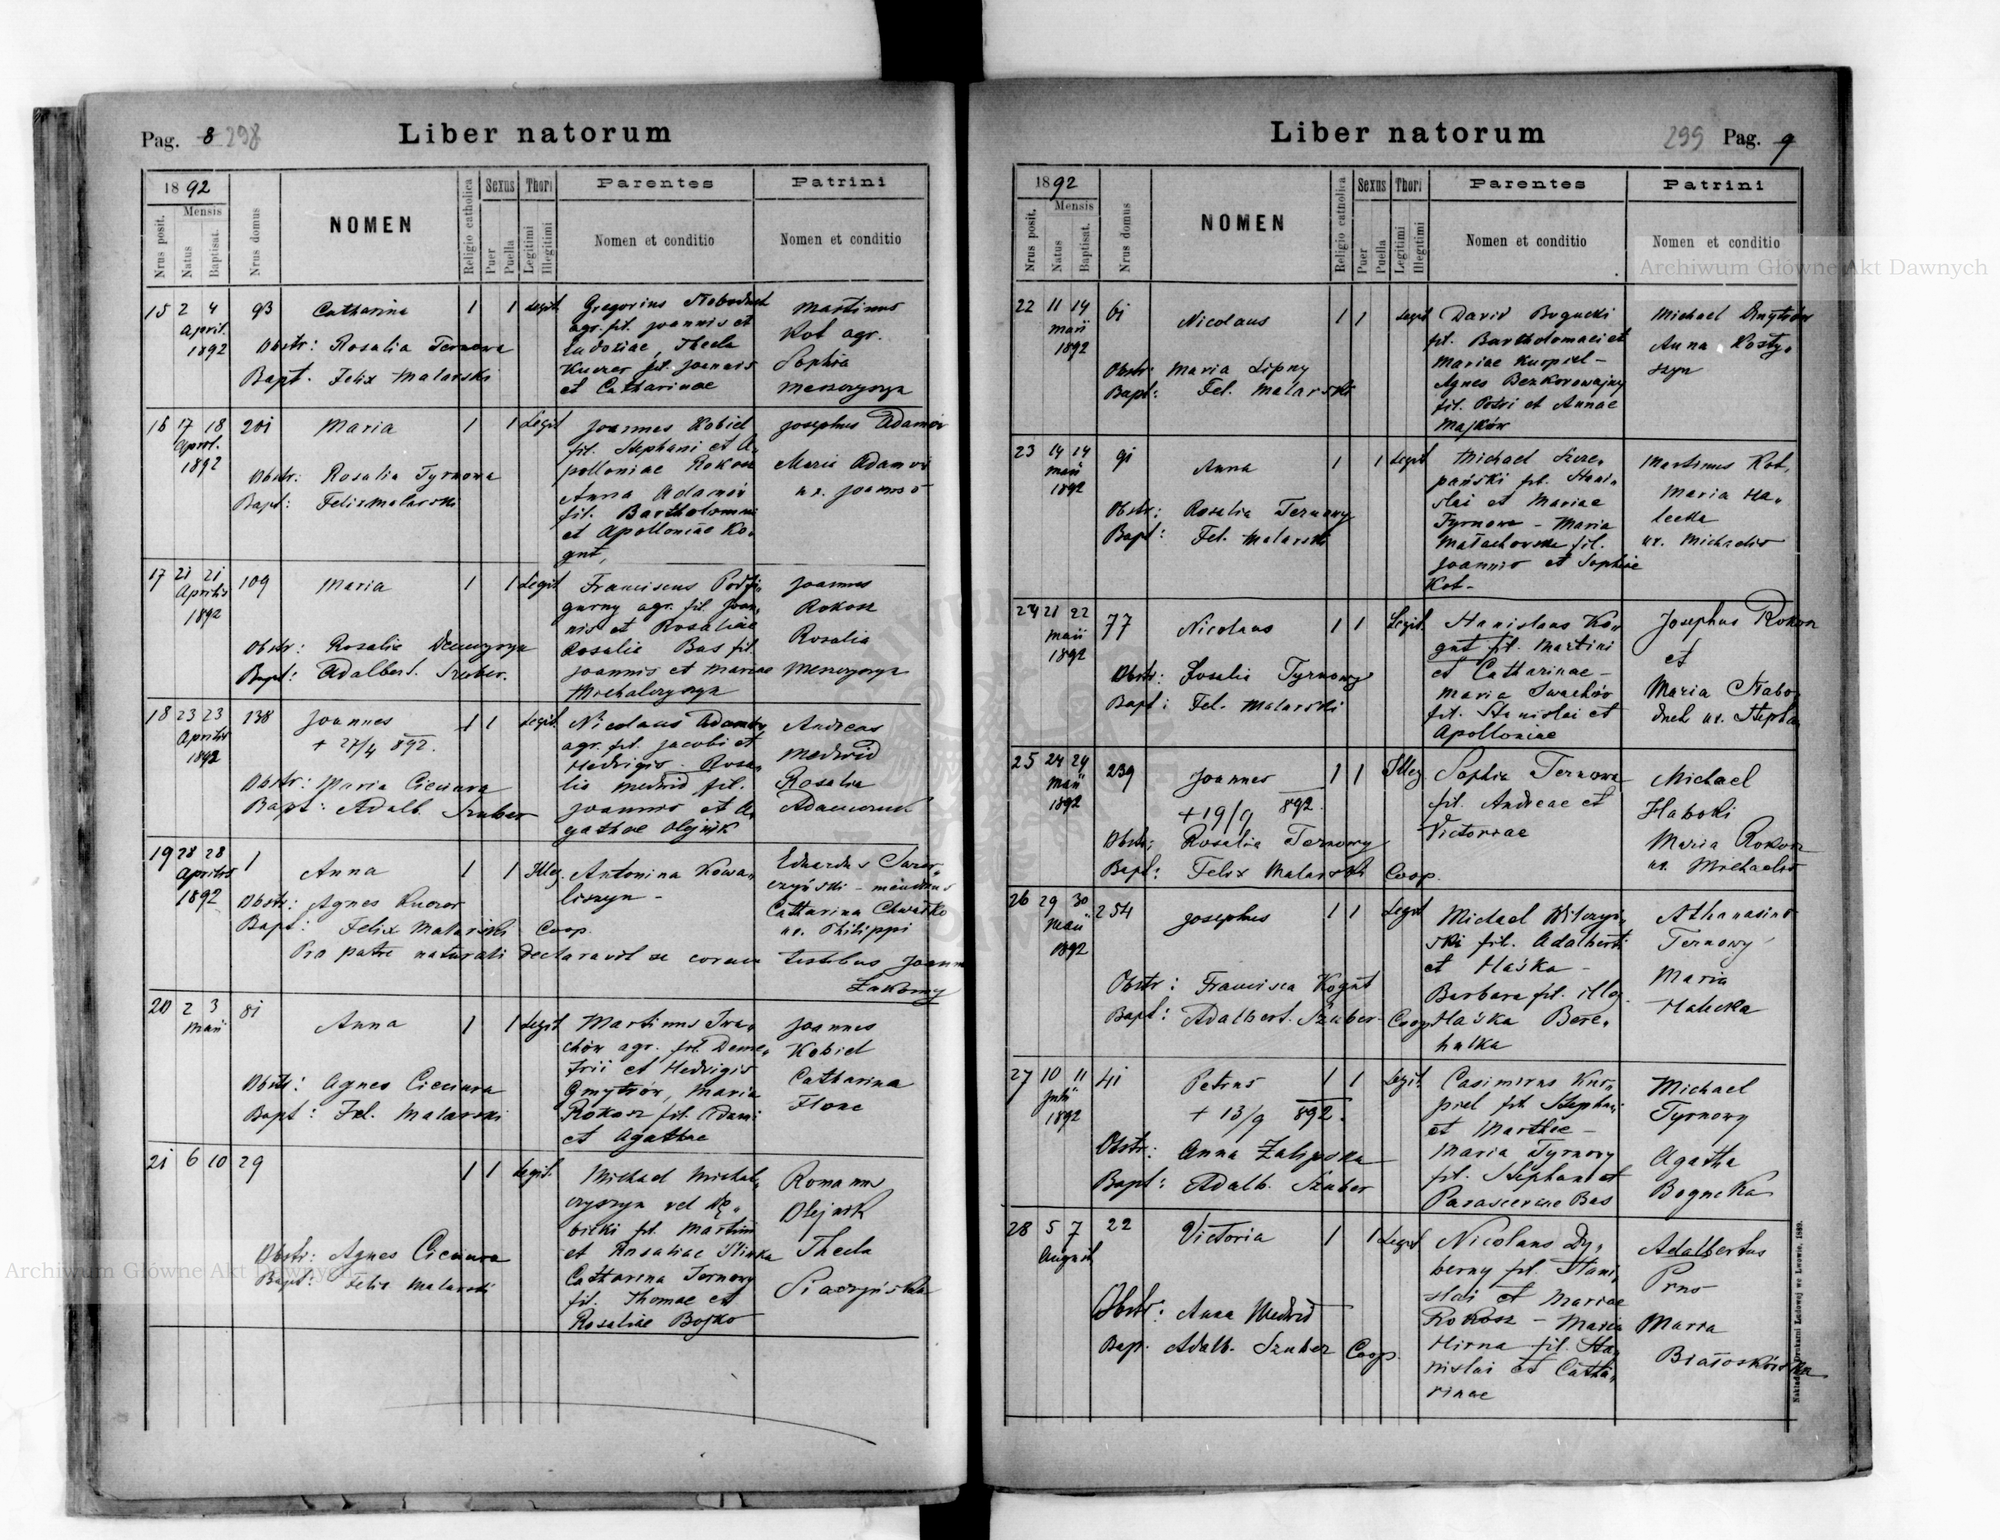 Pag. 8 298
Liber natorum
1892
Mensis
Nrus posit.
Natus
Baptisat.
Nrus domus
NOMEN
Religio catholica
Sexus
Puer
Puella
Thori
Legitimi
Illegitimi
Parentes
Nomen et conditio
Patrini
Nomen et conditio
15 2 4 93 Catharina 1 1 Legit.
April. 1892
Obstr: Rosalia Ternowa
Bapt. Felix Malarski
Gregorius
agr. fil. Joannis et
Eudoxiae, Thecla
Kuczer fil. Joannis
et Catharinae
Martinus
Kot agr.
Sophia
16 17 18 201 Maria 1 1 Legit
April. 1892
Obstr: Rosalia Tyrnowa
Bapt: Felix Malarski
Joannes Kobiel
fil. Stephani et A,
polloniae Rokosz
Anna Adamów
fil. Bartholomaei
et Apolloniae Ko,
gut,
Josephus Adamów
Maria Adamów
ux. Joannis
17 21 21 109 Maria 1 1 Legit
Aprilis 1892
Obstr: Rosalia
Bapt: Adalbert. Szuber.
Franciscus Podfi,
gurny agr. fil. Joan,
nis et Rosaliae
Rosalia Bas fil.
Joannis et Mariae
Michalczyszyn
Joannes
Rokosz
Rosalia
18 23 23 138 Joannes 1 1 Legit.
Aprilis 1892
+ 27/4 892.
Obstr: Maria Ciciura
Bapt: Adalb. Szuber
Nicolaus Adamów
agr. fil. Jacobi et
Hedvigis. Rosa,
lia Medwid fil.
Joannis et A,
gathae Olejnik
Andreas
Medwid
Rosalia
19 28 28 1 Anna 1 1 Illeg.
Aprilis 1892
Obstr: Agnes Kuczer
Bapt: Felix Malarski Coop.
Antonina Kowa,
liszyn -
Catharina
ux. Philippi
Pro patre naturali declaravit se coram testibus Joann
20 2 3 81 Anna 1 1 Legit
Maii
Obstr: Agnes Ciciura
Bapt: Fel. Malarski
Martinus Iwa,
chów agr. fil. Deme,
trii et Hedvigis
Dmytrów, Maria
Rokosz fil. Adami
et Agathae
Joannes
Kobiel
Catharina
Florc
21 6 10 29 1 1 Legit.
Obstr: Agnes Ciciura
Bapt: Felix Malarski
Michael Michal,
czyszyn vel Dę,
bicki fil. Martini
et Rosaliae
Catharina Ternowy
fil. Thomae et
Rosaliae Bojko
Romanus
Olejnik
Thecla
Liber natorum
299 Pag. 9
1892
Mensis
Nrus posit.
Natus
Baptisat.
Nrus domus
NOMEN
Religio catholica
Sexus
Puer
Puella
Thori
Legitimi
Illegitimi
Parentes
Nomen et conditio
Patrini
Nomen et conditio
22 11 14 61 Nicolaus 1 1 Legit
Maii 1892
Obstr: Maria Lipny
Bapt: Fel. Malarski
David Bogucki
fil. Bartholomaei et
Mariae Kurpiel -
Agnes Bezkorowajny
fil. Petri et Annae
Majków
Michael Dmytrów
Anna Kosty,
szyn
23 14 14 91 Anna 1 1 Legit
Maii 1892
Obstr: Rosalia Ternowy
Bapt: Fel. Malarski
Michael Szcze,
pański fil. Stani,
slai et Mariae
Tyrnowa - Maria
Małachowska fil.
Joannis et Sophiae
Kot -
Martinus Kot,
Maria Ha,
lecka
ux. Michaelis
24 21 22 77 Nicolaus 1 1 Legit.
Maii 1892
Obstr: Rosalia Tyrnowy
Bapt: Fel. Malarski
Stanislaus Ko,
gut fil. Martini
et Catharinae -
Maria Iwachów
fil. Stanislai et
Apolloniae
Josephus Rokosz
et
Maria
25 24 24 239 Joannes 1 1 Illeg
Maii 1892
+ 19/9 892.
Obstr: Rosalia Ternowy
Bapt: Felix Malarski Coop.
Sophia Ternowa
fil. Andreae et
Victoriae
Michael
Maria Rokosz
ux. Michaelis
26 29 30 254 Josephus 1 1 Legit
Maii 1892
Obstr: Francisca Kogut
Bapt: Adalbert. Szuber. Coop
Michael Wilczyń,
ski fil. Adalberti
et Haśka -
Barbara fil. illeg.
Haśka Bere,
halka
Athanasius
Ternowy
Maria
Halicka
27 10 11 41 Petrus 1 1 Legit.
Julii 1892
+ 13/9 892.
Obstr: Anna Zalipska
Bapt: Adalb. Szuber
Casimirus Kur,
piel fil. Stephani
et Marthae -
Maria Tyrnowy
fil. Stephani et
Parascevae Bas
Michael
Tyrnowy
Agatha
Bogucka
28 5 7 22 Victoria 1 1 Legit
Augusti
Obstr: Anna Medwid
Bap. Adalb. Szuber Coop.
Nicolaus Dy,
berny fil. Stani,
slai et Mariae
Rokosz - Maria
Hirna fil. Sta,
nislai et Catha,
rinae
Adalbertus
Prus
Maria
Białoskórska
Nakład Drukarni Ludowej we Lwowie, 1889.
Archiwum Główne Akt Dawnych
Archiwum Główne Akt Dawnych